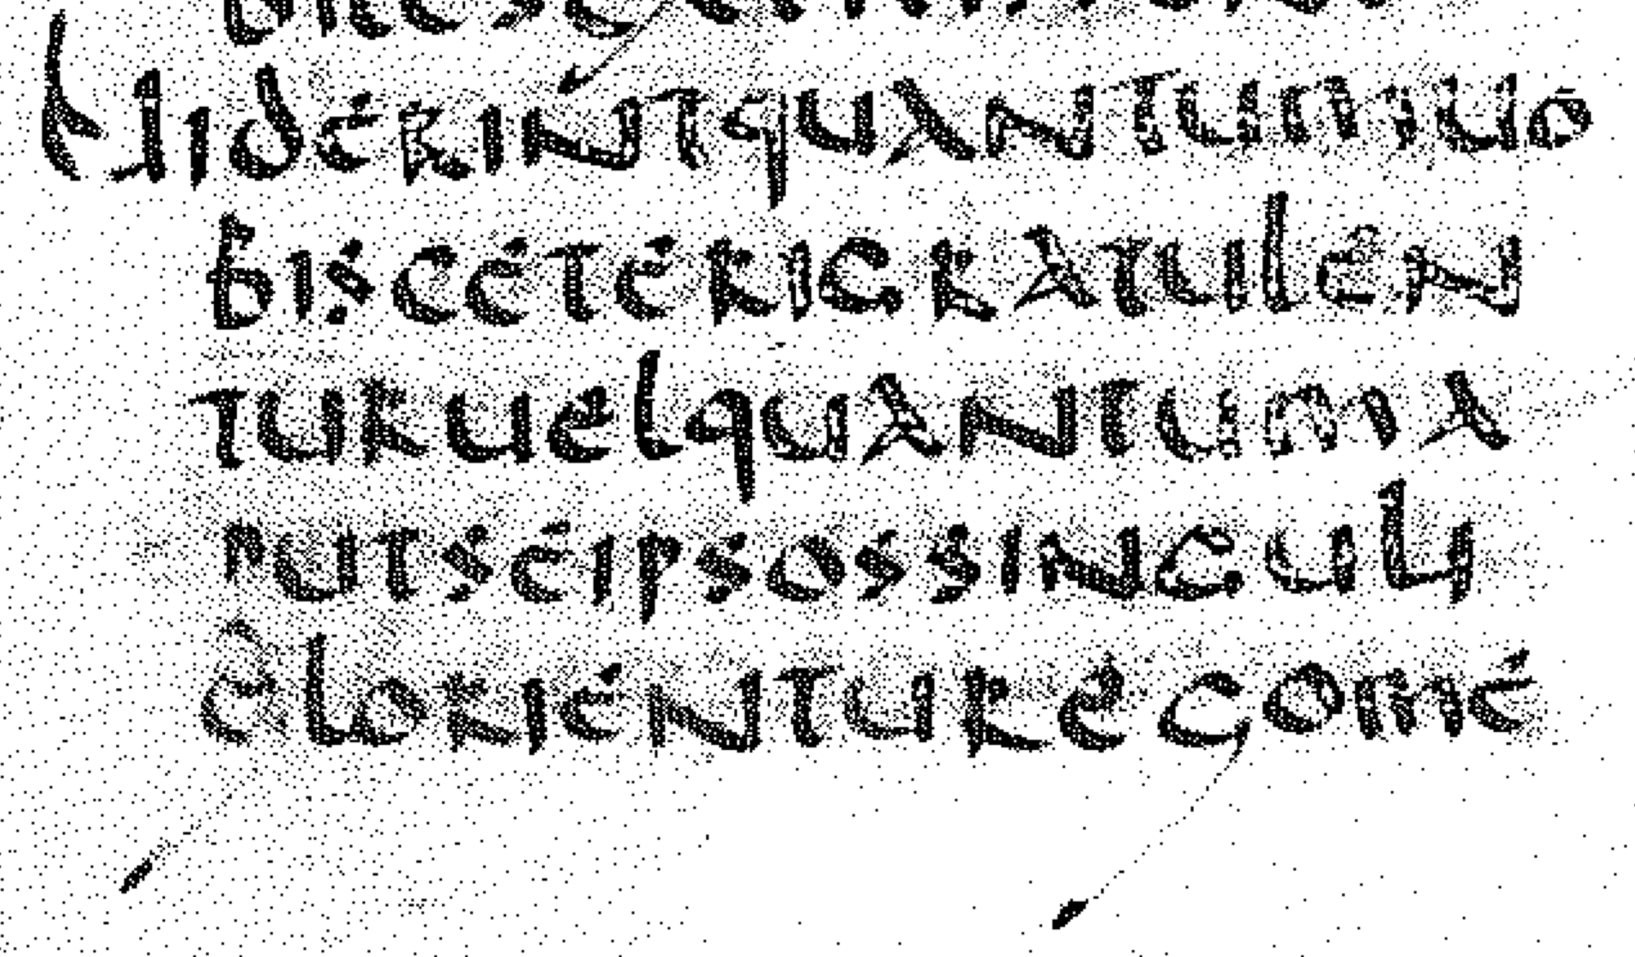 uiderintquantumuo
bisceterigratulen
turuelquantuma
putseipsossinguli
glorienturegome